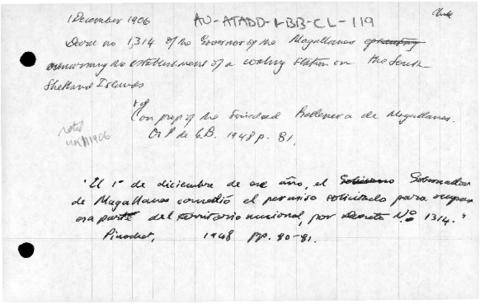 1 December 1906 AU-ATADD-1-BB-CL-119 Chile
Decree no 1,314 of the Governor of the Magallanes
announcing the establishment of a coaling station on the South
Shetland Islands
Con prep of the Sociedad Ballenera de Magallanes.
1948 p. 81.
1906
"El 1º de diciembre de ese año, el Gobernador
de Magallanes concedió el permiso solicitado para ocupar
esa parte del territorio nacional, por Decreto Nº 1314."
Pinochet, 1948 pp. 80-81.